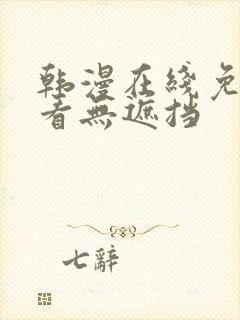 韩漫在线免
看無遮挡
七辭